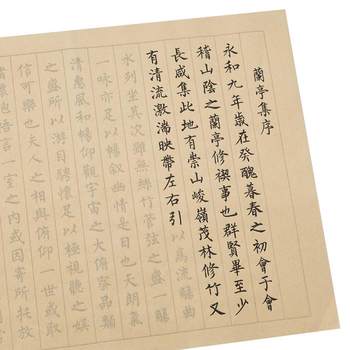 蘭亭集序
永和九年歲在癸醜暮春之初會于會
稽山陰之蘭亭修禊事也群賢畢至少
長咸集此地有崇山峻嶺茂林修竹又
有清流激湍映帶左右引以爲流觴曲
水列坐其次雖無絲竹管弦之盛一觴
一咏亦足以暢叙幽情是日也天朗氣
清惠風和暢仰觀宇宙之大俯察品類
之盛所以游目騁懷足以極視聽之娛
信可樂也夫人之相與俯仰一世或取
懷抱悟言一室之内或因寄所托放